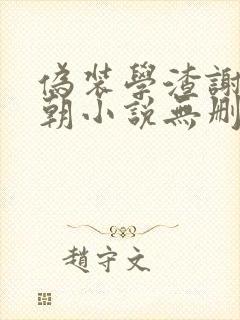 偽裝學渣謝
朝小説無删
趙守文